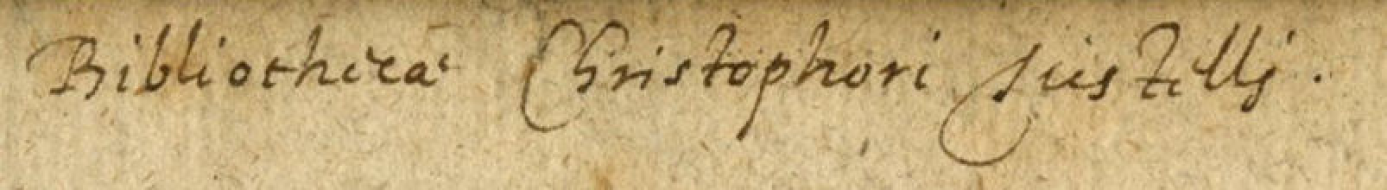 Bibliothecae Christophori Justelli.